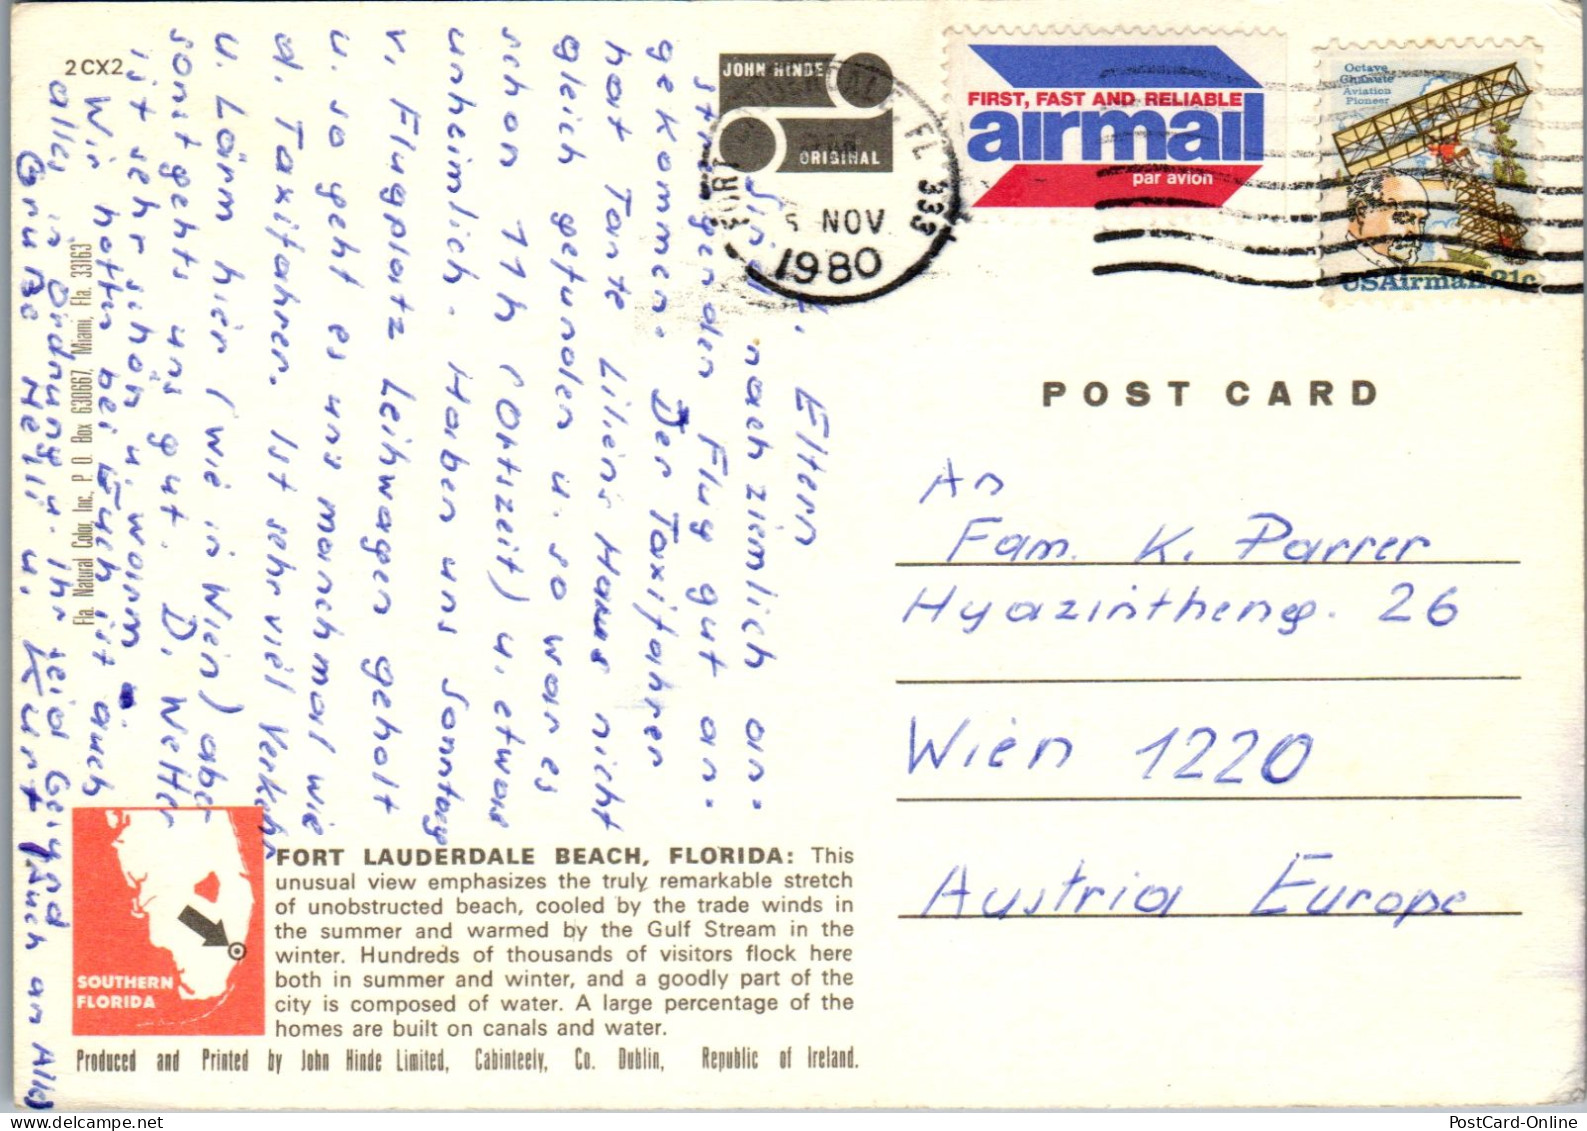 2CX2
JOHN HINDE
ORIGINAL
FORT LAUDERDALE, FL 333
5 NOV
1980
FIRST, FAST AND RELIABLE
airmail
par avion
Octave
Chanute
Aviation
Pioneer
USAirmail 21c
POST CARD
Eltern
Sind nach ziemlich an-
strengenden Flug gut an-
gekommen. Der Taxifahrer
hat Tante Liliens Haus nicht
gleich gefunden u. so war es
schon 11h (Ortszeit) u. etwas
unheimlich. Haben uns Sonntag
v. Flugplatz Leihwagen geholt
u. so geht es uns manchmal wie
d. Taxifahrer. Ist sehr viel Verkehr
u. Lärm hier (wie in Wien) aber
sonst gehts uns gut. D. Wetter
ist sehr schön u. warm.
Wir hoffen bei Euch ist auch
alles in Ordnung u. Ihr seid Gesund
Grüße Melli u. Kurt (Auch an Alle)
An
Fam. K. Parrer
Hyazintheng. 26
Wien 1220
Austria Europe
Fla. Natural Color, Inc., P. O. Box 630667, Miami, Fla. 33163
SOUTHERN
FLORIDA
FORT LAUDERDALE BEACH, FLORIDA: This
unusual view emphasizes the truly remarkable stretch
of unobstructed beach, cooled by the trade winds in
the summer and warmed by the Gulf Stream in the
winter. Hundreds of thousands of visitors flock here
both in summer and winter, and a goodly part of the
city is composed of water. A large percentage of the
homes are built on canals and water.
Produced and Printed by John Hinde Limited, Cabinteely, Co. Dublin, Republic of Ireland.
PostCard-Online